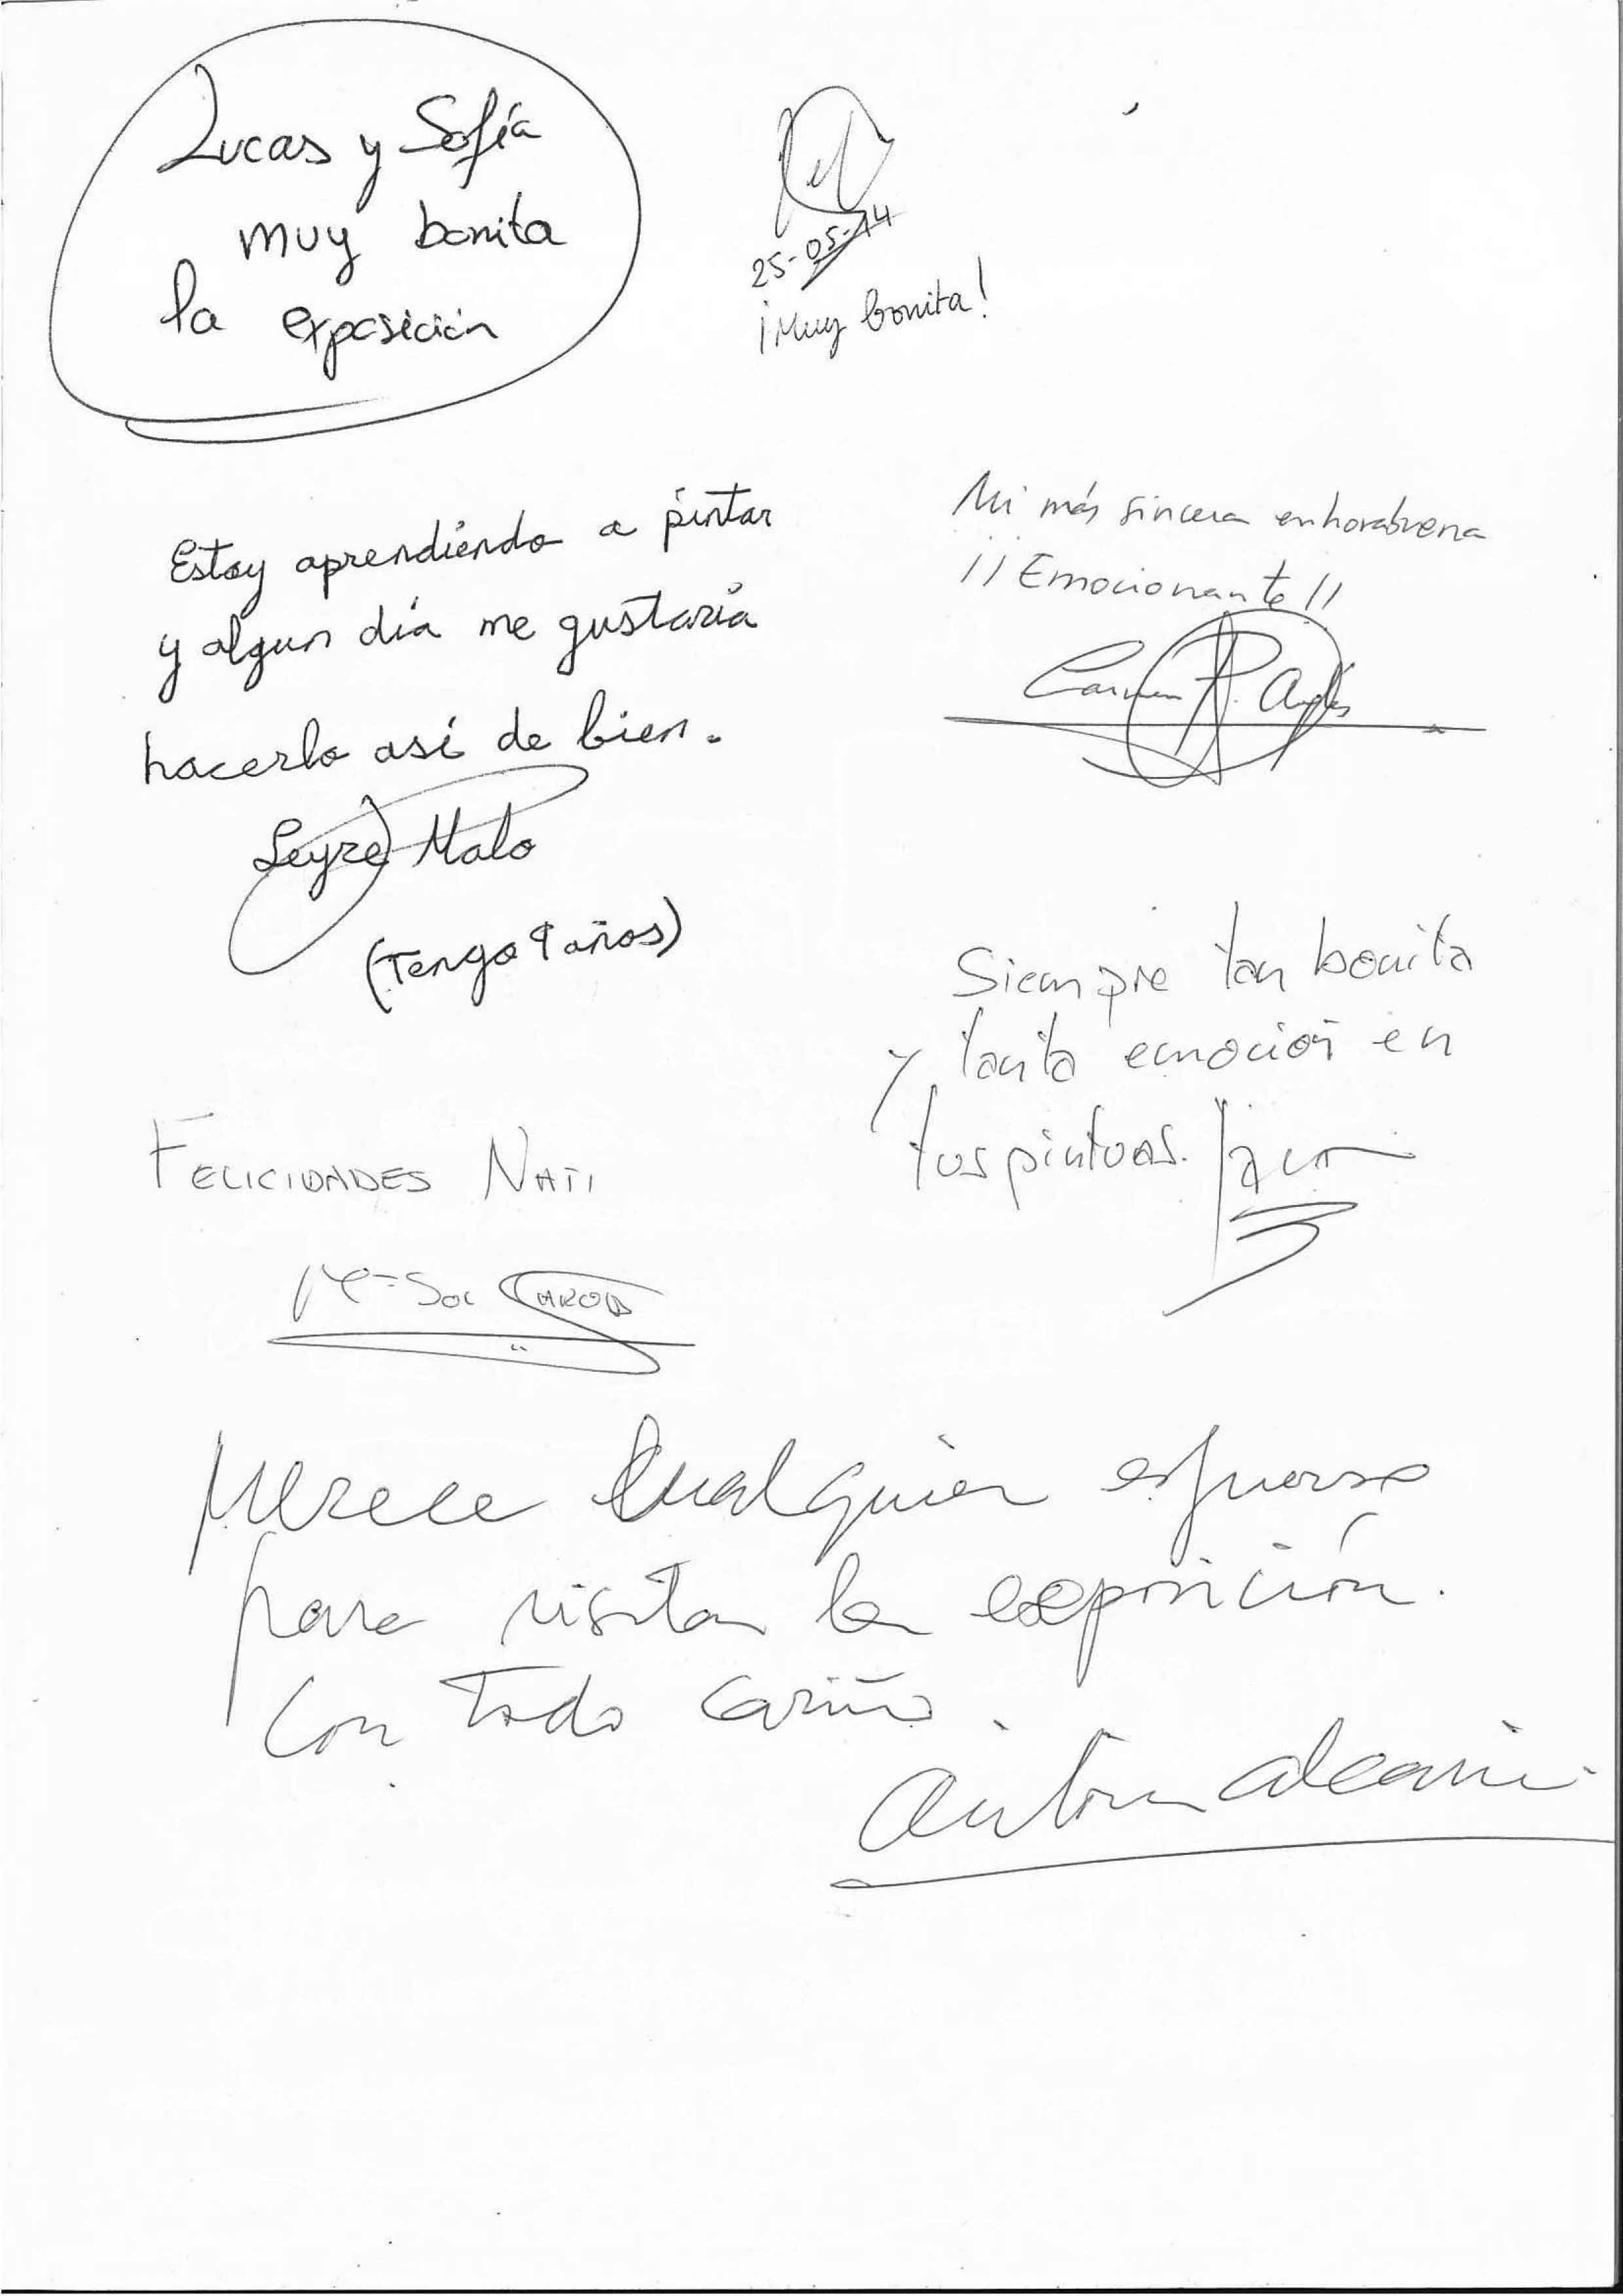 Lucas y Sofía
muy bonita
la exposición
25-05-14
¡Muy bonita!
Estoy aprendiendo a pintar
y algun día me gustaría
hacerlo así de bien.
Leyre Malo
(Tengo 9 años)
Mi más sincera enhorabuena
¡¡Emocionante!!
Carmen
Siempre tan bonita
y tanta emoción en
tus pinturas.
FELICIDADES NATI
Mª SOL
Merece cualquier esfuerzo
para visitar la exposición.
Con todo cariño.